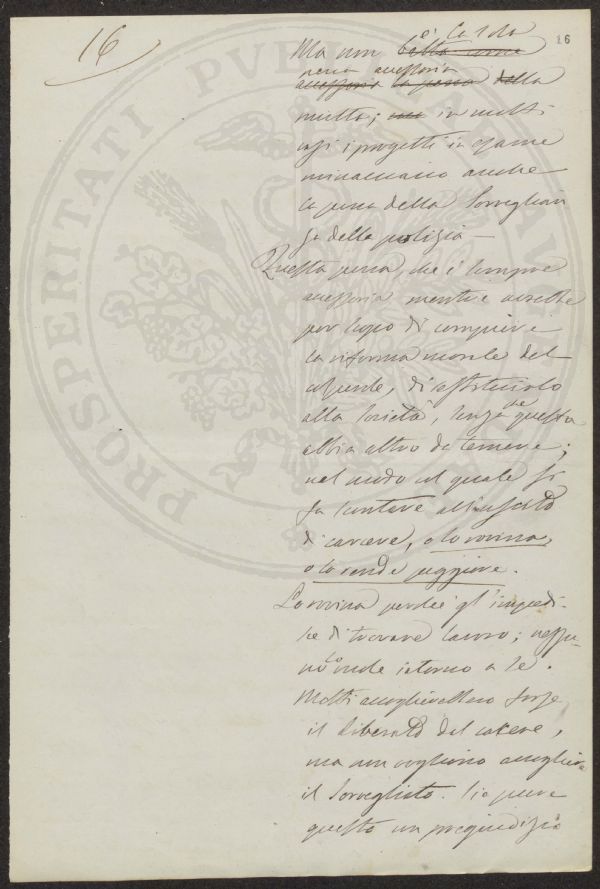 16
16
è la sola
Ma non basta come
pena accessoria
accessoria la pena della
multa; in molti
casi i progetti in esame
minacciano anche
la pena della Sorveglian
za della polizia —
Questa pena, che è sempre
accessoria mentre
per scopo di compiere
la riforma morale del
colpevole, di restituirlo
alla società, senza che questa
abbia altro da temere;
nel modo col quale si
fa scontare all'uscito
di carcere, o lo rovina,
o lo rende peggiore.
Lo rovina perché gl'impedi-
sce di trovare lavoro; nessu-
no lo vuole intorno a sé.
Molti accoglierebbero forse
il liberato dal carcere,
ma non vogliono accogliere
il Sorvegliato. Sia pure
questo un pregiudizio
PROSPERITATI PVBLICAE AVGE